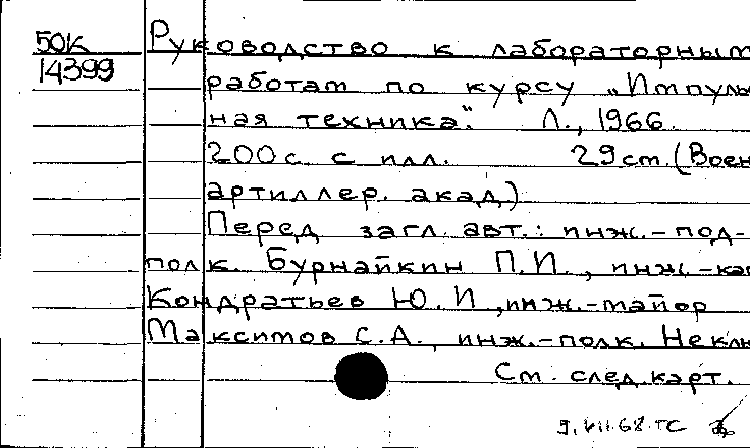 50К
14399
Руководство к лабораторным
работам по курсу „Импуль
ная техника". Л., 1966.
200с. с илл. 29см. (Воен
артиллер. акад.)
Перед загл. авт.: инж.-под-
полк. Бурнайкин П.И., инж.-кап
Кондратьев Ю.И, инж.-майор
Максимов С.А., инж.-полк. Неклю
См. след. карт.
9.VII.68. ТС